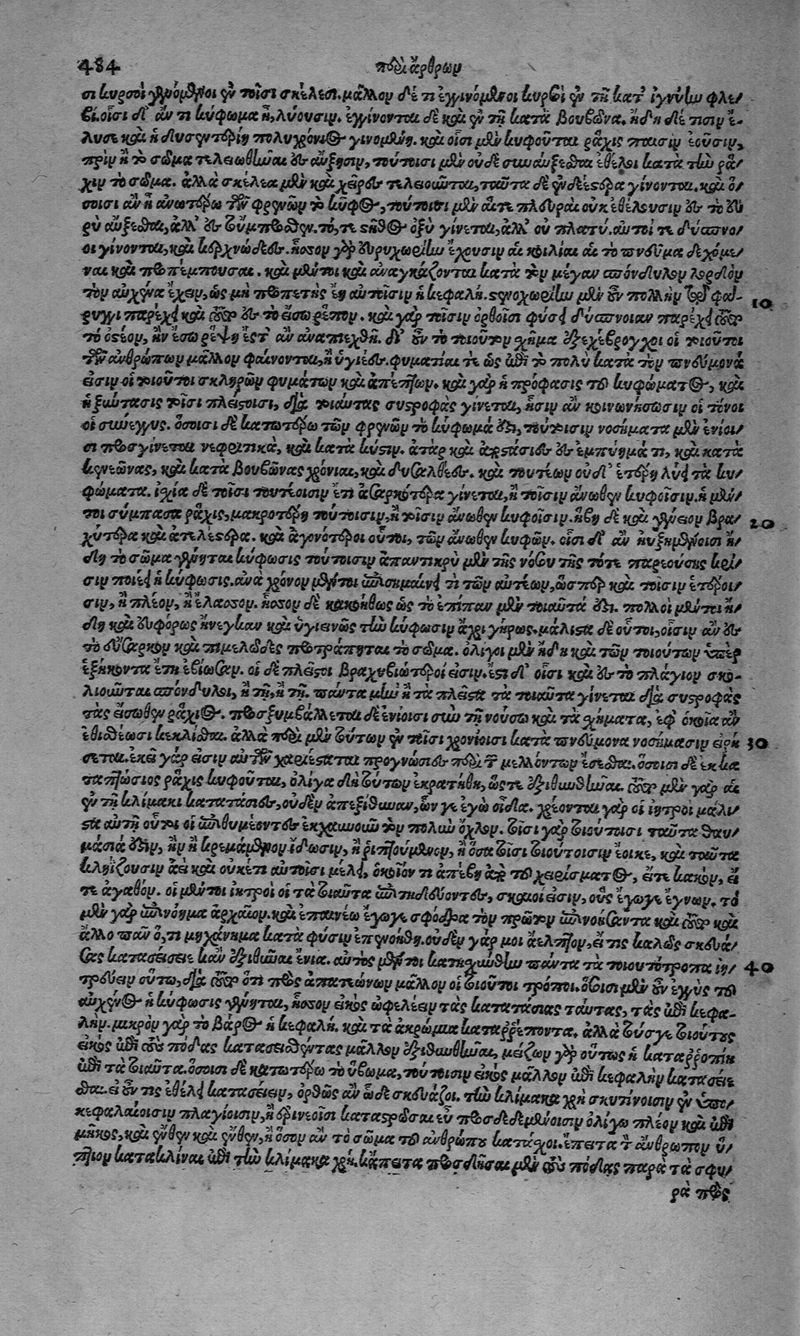 484 περὶ ἄρθρων
σι κυρσοὶ γινόμενοι ἐν τοῖσι σκέλεσι. μᾶλλον δέ τι ἐγγινόμενοι κυρσοὶ ἐν τῇ κατ' ἰγνύων φλε-
βί. οἷσι δ' ἂν τι κύφωμα ᾖ, λύουσιν. ἐγγίνονται δὲ καὶ ἐν τῇ κατὰ βουβῶνα. ἤδη δέ τισιν ἔ-
λυσε καὶ ἡ δυσεντερίη πολυχρόνιος γινομένη. καὶ οἷσι μὲν κυφοῦται ῥάχις παισὶν ἐοῦσιν,
πρὶν ἢ τὸ σῶμα τελειωθῆναι ἐς αὔξησιν, τούτοισι μὲν οὐδὲ συναύξεσθαι ἐθέλοι κατὰ τὴν ῥά-
χιν τὸ σῶμα. ἀλλὰ σκέλεα μὲν καὶ χεῖρες τελειοῦνται, ταῦτα δὲ ἐνδεέστερα γίνονται. καὶ ὅ-
σοισι ἂν ᾖ ἀνωτέρω τῶν φρενῶν τὸ κῦφος, τούτοισι μὲν αἵ τε πλευραὶ οὐκ ἐθέλουσιν ἐς τὸ εὐ-
ρὺ αὔξεσθαι, ἀλλ' ἐς τοὔμπροσθεν. τό, τε στῆθος ὀξὺ γίνεται, ἀλλ' οὐ πλατύ. αὐτοί τε δύσπνο-
οι γίνονται, καὶ κερχνώδεες. ἧσσον γὰρ εὐρυχωρίην ἔχουσιν αἱ κοιλίαι αἱ τὸ πνεῦμα δεχόμε-
ναι καὶ προπέμπουσαι. καὶ μέντοι καὶ ἀναγκάζονται κατὰ τὸν μέγαν σπόνδυλον λορδὸν
τὸν αὐχένα ἔχειν, ὡς μὴ προπετὴς ἔῃ αὐτοῖσιν ἡ κεφαλή. στενοχωρίην μὲν οὖν πολλὴν τῇ φά- 10
ρυγγι παρέχει καὶ τοῦτο ἐς τὸ εἴσω ῥέπον. καὶ γὰρ τοῖσιν ὀρθοῖσι φύσει δύσπνοιαν παρέχει τοῦτο
τὸ ὀστέον, ἢν ἔσω ῥέψῃ ἔς τ' ἂν ἀναπιεχθῇ. δι' οὖν τὸ τοιοῦτον σχῆμα ἐξεχέβρογχοι οἱ τοιοῦτοι
τῶν ἀνθρώπων μᾶλλον φαίνονται, ἢ ὑγιέες. φυματίαι τε ὡς ἐπὶ τὸ πολὺ κατὰ τὸν πνεύμονά
εἰσιν οἱ τοιοῦτοι σκληρῶν φυμάτων καὶ ἀπέπτων. καὶ γὰρ ἡ πρόφασις τοῦ κυφώματος, καὶ
ἡ ξύντασις τοῖσι πλείστοισι, διὰ τοιαύτας συστροφὰς γίνεται, ᾗσιν ἂν κοινωνήσωσιν οἱ τόνοι
οἱ σύνεγγυς. ὁπόσοισι δὲ κατωτέρω τῶν φρενῶν τὸ κύφωμά ἐστι, τούτοισιν νοσήματα μὲν ἐνίοι-
σι προσγίνεται νεφριτικά, καὶ κατὰ κύστιν. ἀτὰρ καὶ ἀποστάσιες ἐς ἐμπύημά τι, καὶ κατὰ
κενεῶνας, καὶ κατὰ βουβῶνας χρόνιαι, καὶ δυσαλθέες. καὶ τουτέων οὐδ' ἑτέρη λύει τὰ κυ-
φώματα. ἰσχία δὲ τοῖσι τουτέοισιν ἔτι ἀσαρκότερα γίνεται, ἢ τοῖσιν ἄνωθεν κυφοῖσιν. ἡ μέν-
τοι σύμπασα ῥάχις, μακροτέρη τούτοισιν, ἢ τοῖσιν ἄνωθεν κυφοῖσιν. ἥβη δὲ καὶ γένειον βρα- 20
χύτερα καὶ ἀτελέστερα. καὶ ἀγονότεροι οὗτοι, τῶν ἄνωθεν κυφῶν. οἷσι δ' ἂν ηὐξημένοισι ἤ-
δη τὸ σῶμα γένηται κύφωσις τούτοισιν ἁπαντικρὺ μὲν τῆς νόσου τῆς τότε παρεούσης κρί-
σιν ποιέει ἡ κύφωσις. ἀνὰ χρόνον μέντοι ἐπισημαίνει τι τῶν αὐτέων, ὥσπερ καὶ τοῖσιν ἑτέροι-
σιν, ἢ πλέον, ἢ ἔλασσον. ἧσσον δὲ κακοήθως ὡς τὸ ἐπίπαν μὲν τοιαῦτά ἐστι. πολλοὶ μέντοι ἤ-
δη καὶ εὐφόρως ἤνεγκαν καὶ ὑγιεινῶς τὴν κύφωσιν ἄχρι γήρως. μάλιστα δὲ οὗτοι, οἷσιν ἂν ἐς
τὸ εὔσαρκον καὶ πιμελῶδες προτράπηται τὸ σῶμα. ὀλίγοι μὲν ἤδη καὶ τῶν τοιούτων ὑπὲρ
ἑξήκοντα ἔτη ἐβίωσαν. οἱ δὲ πλεῖστοι βραχυβιώτεροί εἰσιν. ἔστι δ' οἷσι καὶ ἐς τὸ πλάγιον σκο-
λιοῦνται σπόνδυλοι, ἢ τῇ, ἢ τῇ. πάντα μὴν ἢ τὰ πλεῖστα τὰ τοιαῦτα γίνεται διὰ συστροφὰς
τὰς ἔσωθεν ῥάχιος. προσξυμβάλλεται δὲ ἐνίοισι σὺν τῇ νούσῳ καὶ τὰ σχήματα, ἐφ' ὁποῖα ἂν
ἐθισθέωσι κεκλίσθαι. ἀλλὰ περὶ μὲν τούτων ἐν τοῖσι χρονίοισι κατὰ πνεύμονα νοσήμασιν εἰρή- 30
σεται. ἐκεῖ γάρ εἰσιν αὐτῶν χαριέσταται προγνώσιες περὶ τῶν μελλόντων ἔσεσθαι. ὁπόσοισι δὲ ἐκ κα-
ταπτώσιος ῥάχις κυφοῦται, ὀλίγα δὴ τούτων ἐκρατήθη, ὥστε ἐξιθυνθῆναι. τοῦτο μὲν γὰρ αἱ
ἐν τῇ κλίμακι κατατάσιες, οὐδὲν ἀπεξίθυναν, ὧν γε ἐγὼ οἶδα. χρέονται γὰρ οἱ ἰητροὶ μάλι-
στα αὐτῇ οὗτοι οἱ ἐπιθυμέοντες ἐκχαυνοῦν τὸν πολὺν ὄχλον. τοῖσι γὰρ τοιούτοισι ταῦτα θαυ-
μάσιά ἐστιν, ἢν ἢ κρεμάμενον ἴδωσιν, ἢ ῥιπτούμενον, ἢ ὅσα τοῖσι τοιούτοισιν ἔοικε, καὶ ταῦτα
κληίζουσιν ἀεὶ καὶ οὐκέτι αὐτοῖσι μέλει, ὁκοῖόν τι ἀπέβη ἀπὸ τοῦ χειρίσματος, εἴτε κακόν, εἴ-
τε ἀγαθόν. οἱ μέντοι ἰητροὶ οἱ τὰ τοιαῦτα ἐπιτηδεύοντες, σκαιοί εἰσιν, οὓς ἔγωγε ἔγνων. τὸ
μὲν γὰρ ἐπινόημα ἀρχαῖον. καὶ ἐπαινέω ἔγωγε σφόδρα τὸν πρῶτον ἐπινοήσαντα καὶ τοῦτο καὶ
ἄλλο πᾶν ὅ, τι μηχάνημα κατὰ φύσιν ἐπενοήθη. οὐδὲν γάρ μοι ἄελπτον, εἴ τις καλῶς σκευά-
σας κατασείσειε κἂν ἐξιθῦναι ἔνια. αὐτὸς μέντοι κατῃσχύνθην πάντα τὰ τοιουτότροπα ἰη- 40
τρεύειν οὕτω, διὰ τοῦτο ὅτι πρὸς ἀπατεώνων μᾶλλον οἱ τοιοῦτοι τρόποι. ὁπόσοισι μὲν οὖν ἐγγὺς τοῦ
αὐχένος ἡ κύφωσις γένηται, ἧσσον εἰκὸς ὠφελέειν τὰς κατατάσιας ταύτας, τὰς ἐπὶ κεφα-
λήν. μικρὸν γὰρ τὸ βάρος ἡ κεφαλή, καὶ τὰ ἀκρώμια καταρρέποντα, ἀλλὰ τούσγε τοιούτους
εἰκὸς ἐπὶ τοὺς πόδας κατασεισθέντας μᾶλλον ἐξιθυνθῆναι, μείζων γὰρ οὕτως ἡ καταρροπίη
ἐπὶ τὰ τοιαῦτα. ὁπόσοισι δὲ κατωτέρω τὸ ὕβωμα, τούτοισιν εἰκὸς μᾶλλον ἐπὶ κεφαλὴν κατασείε-
σθαι. εἰ οὖν τις ἐθέλει κατασείειν, ὀρθῶς ἂν ὧδε σκευάζοι. τὴν κλίμακα χρὴ σκυτίνοισιν ἐν ὑπο-
κεφαλαίοισιν πλαγίοισιν, ἢ ἐρινεοῖσι καταστρῶσαι εὖ προσδεδεμένοισιν ὀλίγῳ πλέον καὶ ἐπὶ
μῆκος, καὶ ἔνθεν καὶ ἔνθεν, ἢ ὅσον ἂν τὸ σῶμα τοῦ ἀνθρώπου κατάσχοι. ἔπειτα τὸν ἄνθρωπον ὕ-
πτιον κατακλῖναι ἐπὶ τὴν κλίμακα χρή. κἄπειτα προσδῆσαι μὲν τοὺς πόδας παρὰ τὰ σφυ-
ρὰ πρὸς